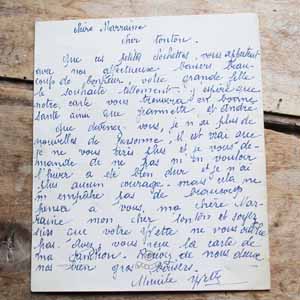 chère Marraine
cher tonton.
Que ces petites clochettes, vous apportent
avec nos affectueux baisers, beau-
coup de bonheur, votre grande fille
le souhaite tellement. J'espère que
notre carte vous trouvera en bonne
santé ainsi que grammette et andré
que devenez-vous, je n'ai plus de
nouvelles de personne, il est vrai que
je ne vous écris plus et je vous de-
mande de ne pas m'en vouloir
l'hiver a été bien dur et je n'ai
plus aucun courage mais cela ne
m'empêche pas de beaucoup
penser à vous, ma chère Mar-
raine mon cher tonton et soyez
sûrs que votre Yvette ne vous oublie
pas. Avez vous reçu la carte de
ma. Recevez de nous deux
nos bien gros baisers.
Yvette